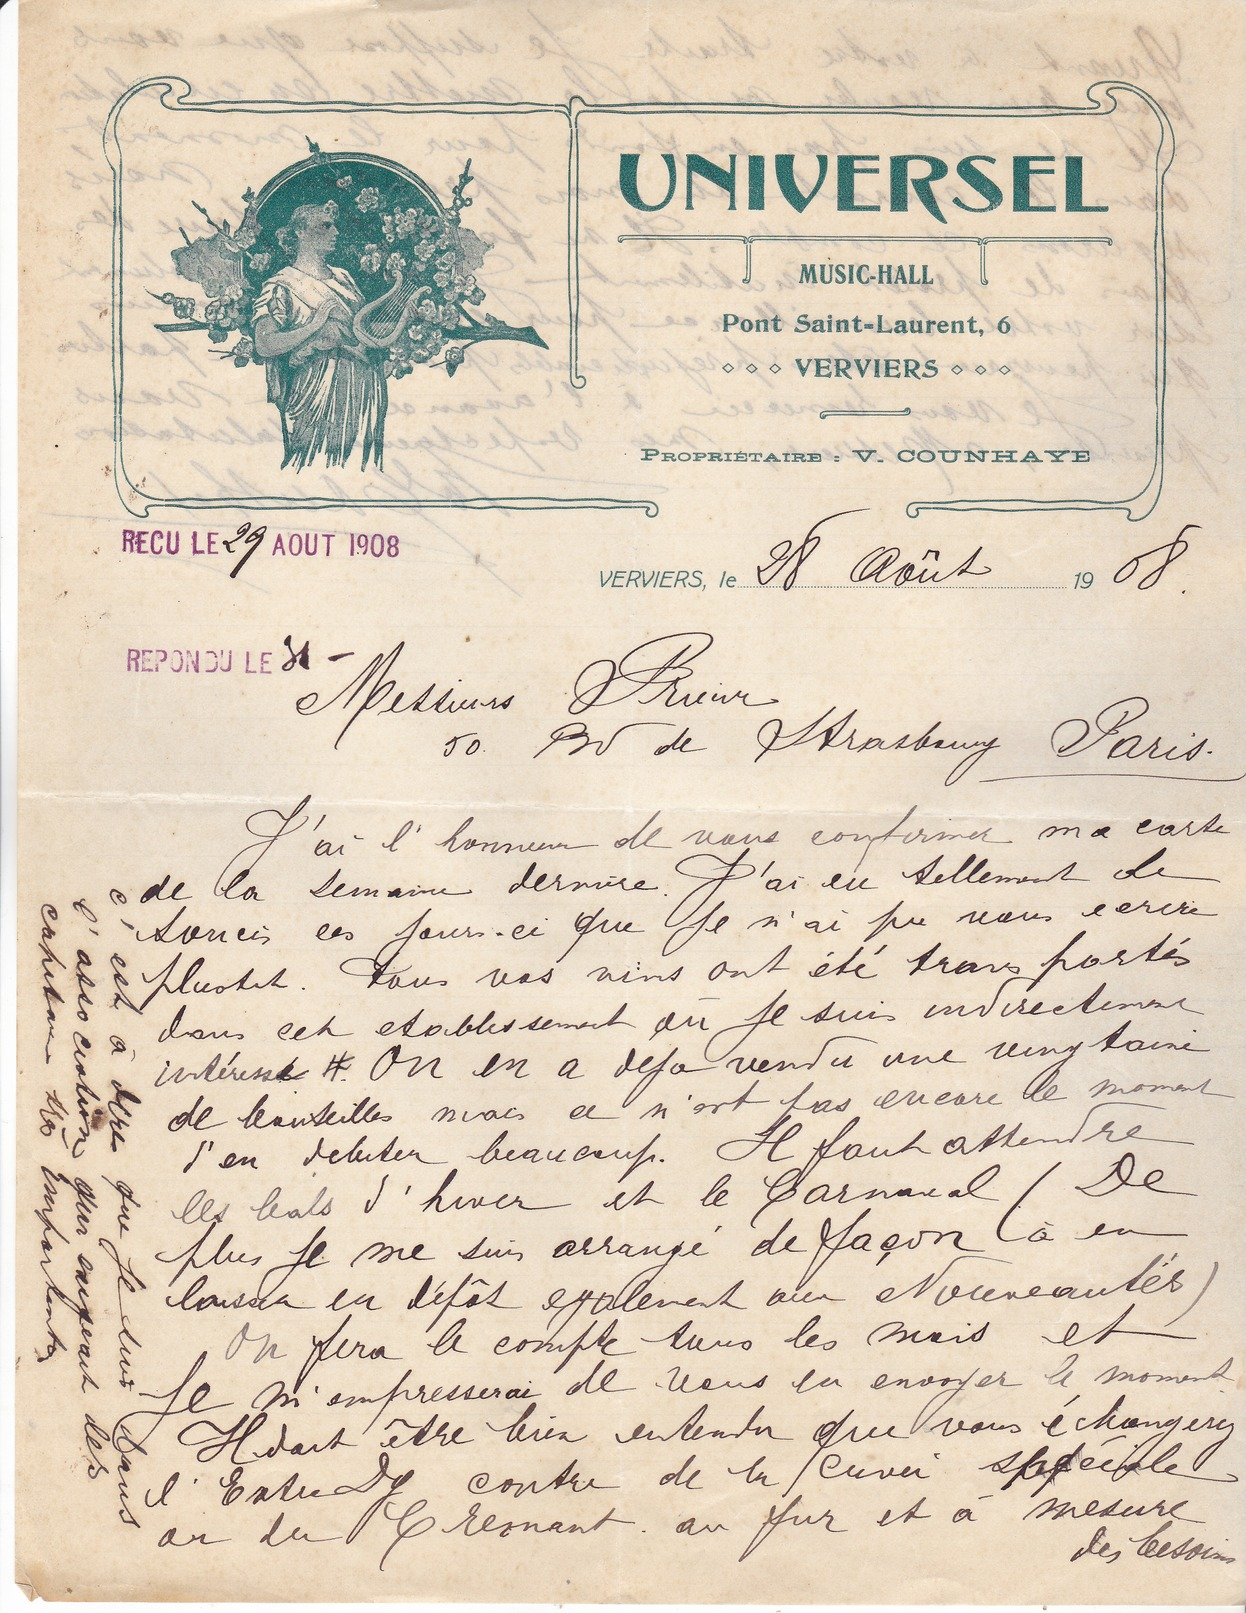 UNIVERSEL
MUSIC-HALL
Pont Saint-Laurent, 6
VERVIERS
PROPRIÉTAIRE : V. COUNHAYE
RECU LE 29 AOUT 1908
VERVIERS, le 28 Août 1908.
REPONDU LE 31 -
Messieurs Prieur
50. Bd de Strasbourg Paris.
J'ai l'honneur de vous confirmer ma carte
de la semaine dernière. J'ai eu tellement de
soucis ces jours-ci que je n'ai pu vous ecrire
plustot. Tous vos vins ont été transportés
dans cet etablissement où je suis indirectement
intéressé #. On en a deja vendu une vingtaine
de bouteilles mais ce n'est pas encore le moment
d'en debiter beaucoup. Il faut attendre
les bals d'hiver et le Carnaval (De
plus je me suis arrangé de façon à en
laisser en dépôt egalement aux Nouveautés)
On fera le compte tous les mois et
je m'empresserai de vous en envoyer le moment.
Il doit être bien entendu que vous échangerez
l'Extra Dy contre de la Cuvée spéciale
ou du Cremant au fur et à mesure
des besoins
c'est à dire que je suis dans
l'association qui exigeait des
capitaux trop importants